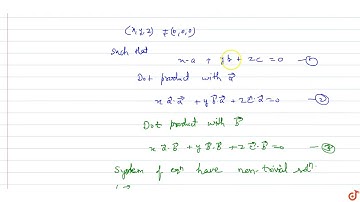 (x,y,z) ≠ (0,0,0)
Such that
x·a + yb + zc = 0 —①
Dot product with a⃗
x a⃗·a⃗ + y b⃗·a⃗ + z c⃗·a⃗ = 0 —②
Dot product with b⃗
x a⃗·b⃗ + y b⃗·b⃗ + z c⃗·b⃗ = 0 —③
System of eqⁿ have non-trivial solⁿ